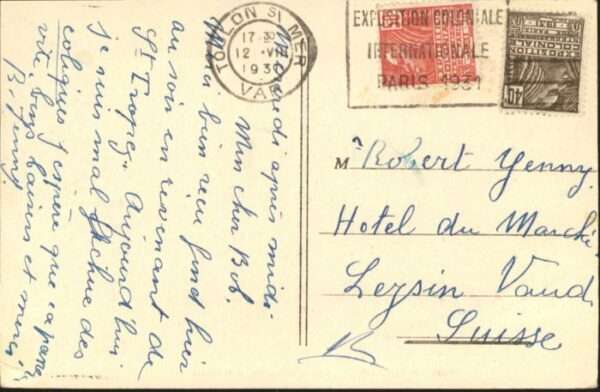 TOULON S/ MER
17 30
12 VII
1930
VAR
EXPOSITION COLONIALE
INTERNATIONALE
PARIS 1931
40
Mercredi après midi
Mon cher Bob.
Merci bien reçu fond hier
au soir en revenant de
St Tropez. Aujourd'hui
je suis mal fichue des
coliques j'espère que ça passera
vite, bons baisers et merci
B. Jenny
M Robert Yenny
Hotel du Marché
Leysin Vaud
Suisse